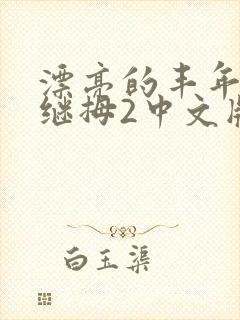 漂亮的丰年
继拇2中文版
白玉渠